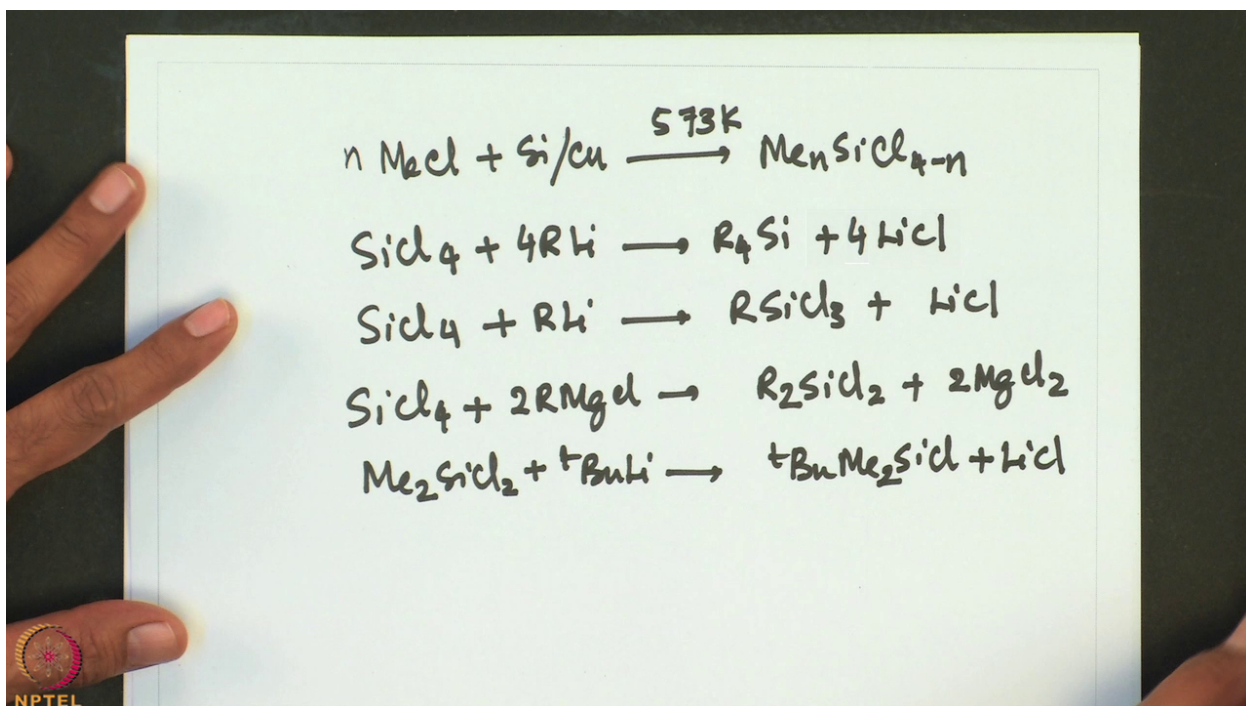 n MeCl + Si/Cu 573K ⟶ MenSiCl4-n
SiCl4 + 4RLi ⟶ R4Si + 4LiCl
SiCl4 + RLi ⟶ RSiCl3 + LiCl
SiCl4 + 2RMgCl ⟶ R2SiCl2 + 2MgCl2
Me2SiCl2 + tBuLi ⟶ tBuMe2SiCl + LiCl
NPTEL